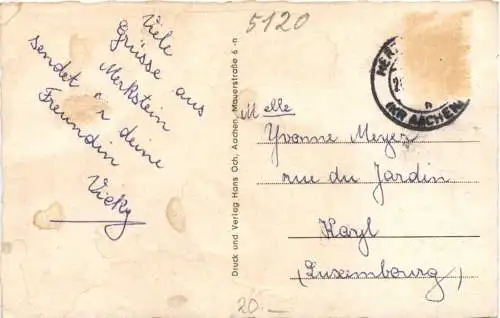 5120
Viele
Grüsse aus
Merkstein
sendet deine
Freundin
Vicky
Druck und Verlag Hans Och, Aachen, Mauerstraße 6
(KR AACHEN)
Melle
Yvonne Meyer
rue du Jardin
Kayl
(Luxembourg)
20.—